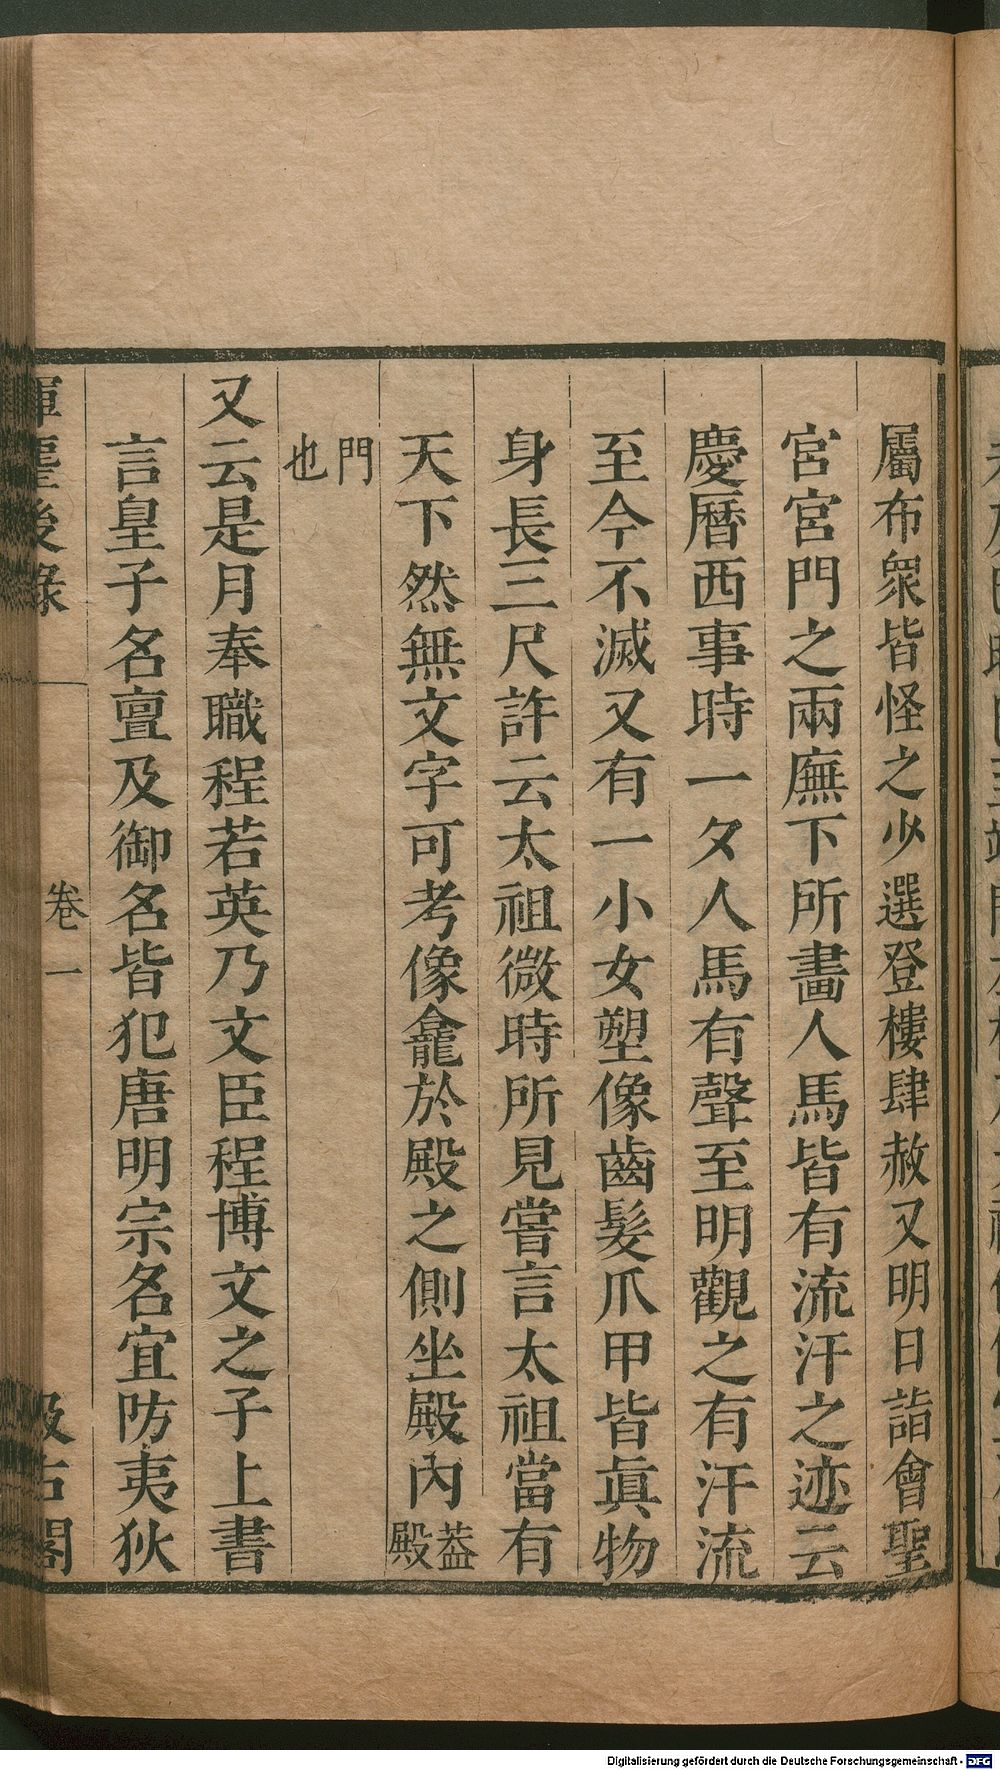 屬布衆皆怪之少選登樓肆赦又明日詣會聖
宮宮門之兩廡下所畫人馬皆有流汗之迹云
慶曆西事時一夕人馬有聲至明觀之有汗流
至今不滅又有一小女塑像齒髮爪甲皆眞物
身長三尺許云太祖微時所見嘗言太祖當有
天下然無文字可考像龕於殿之側坐殿內蓋殿
門也
又云是月奉職程若英乃文臣程博文之子上書
言皇子名亶及御名皆犯唐明宗名宜防夷狄
揮麈後錄 卷一 汲古閣
Digitalisierung gefördert durch die Deutsche Forschungsgemeinschaft - DFG